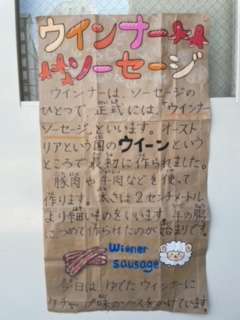 ウインナー
ソーセージ
ウインナーは、ソーセージの
ひとつで、正式には、ウインナー
ソーセージといいます。オースト
リアという国のウイーンという
ところで最初に作られました。
豚肉や牛肉などを使って
作ります。太さは2センチメートル
より細いものをいいます。羊の腸に
つめて作られたのが始まりです。
Wiener
sausage
今日は、ゆでたウインナーに
ケチャップ味のソースをかけています